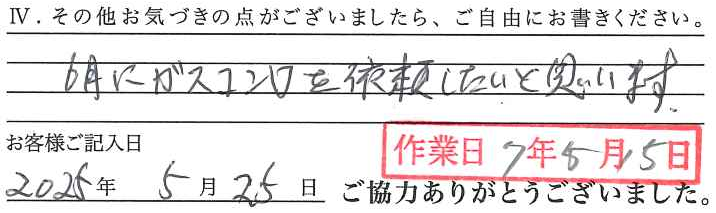 Ⅳ．その他お気づきの点がございましたら、ご自由にお書きください。
6月にガスコンロを依頼したいと思います。
お客様ご記入日
作業日 7年5月15日
2025年 5月25日 ご協力ありがとうございました。